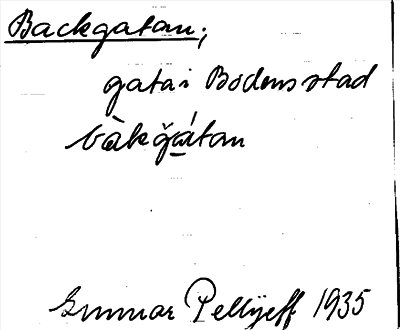 Backgatan;
gata i Bodens stad
bàkg̀átan
Gunnar Pellijeff 1935